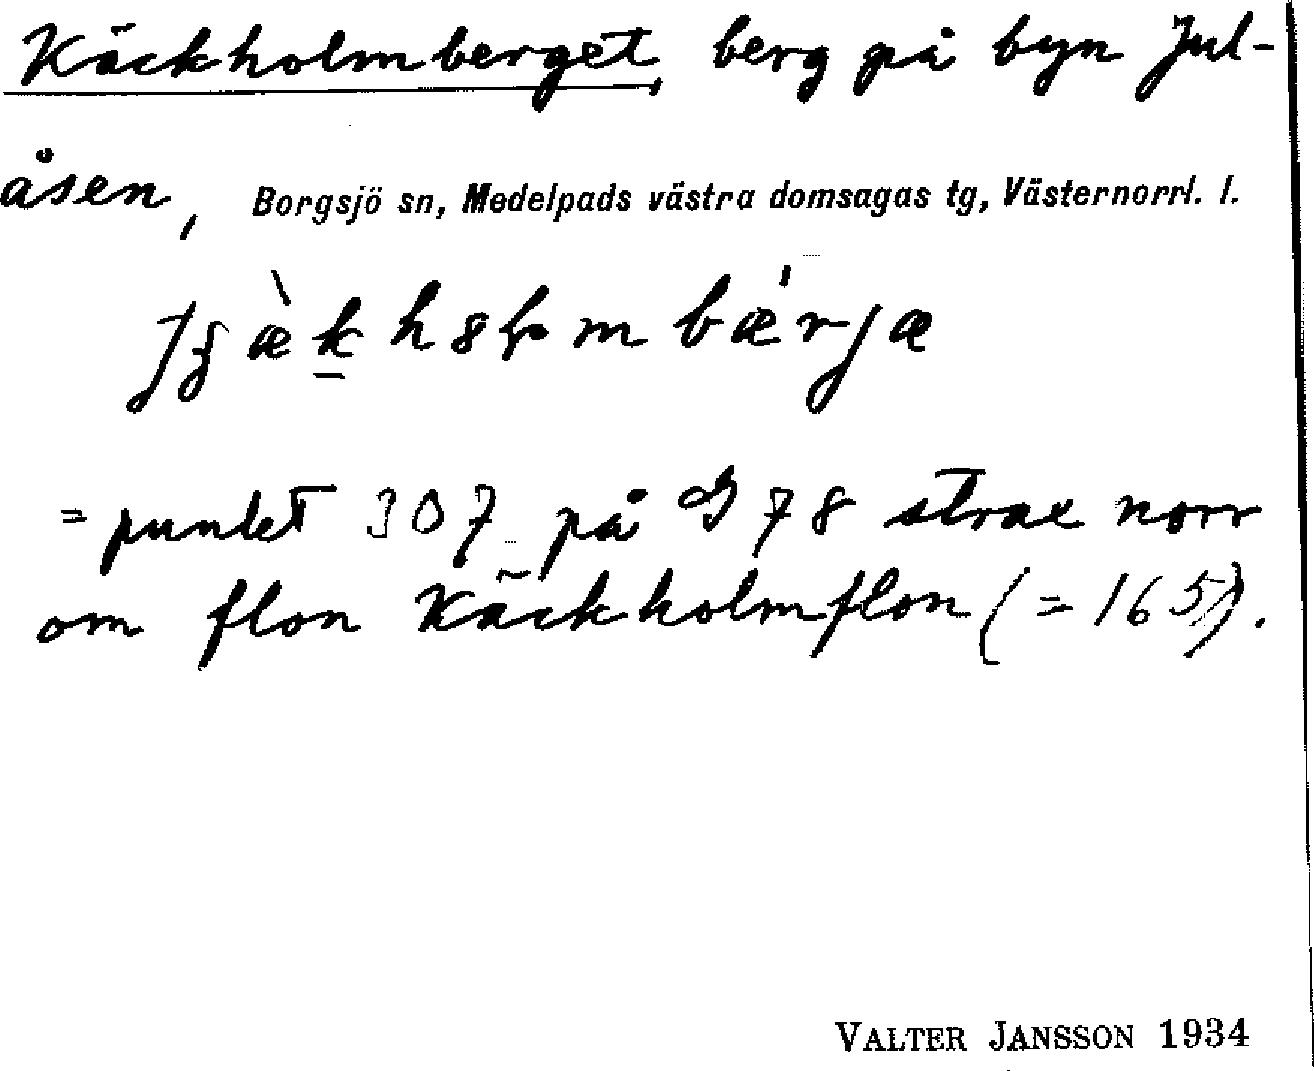 Käckholmberget, berg på byn Jul-
åsen, Borgsjö sn, Medelpads västra domsagas tg, Västernorrl. l.
= punkt 307 på G 78 strax norr
om flon Käckholmflon (= 165).
VALTER JANSSON 1934